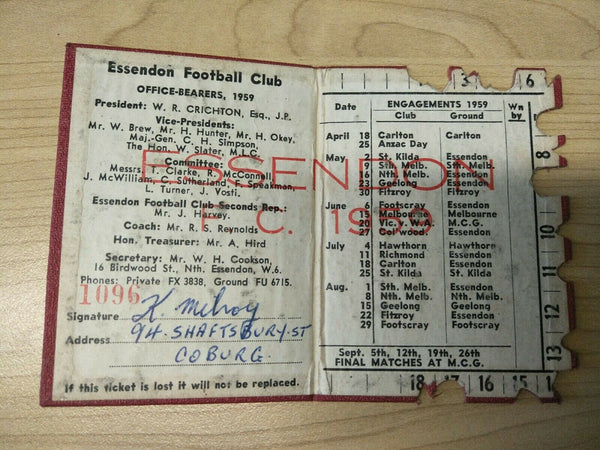 Essendon Football Club
OFFICE-BEARERS, 1959
President: W. R. CRICHTON, Esq., J.P.
Vice-Presidents:
Mr. W. Brew, Mr. H. Hunter, Mr. H. Okey,
Maj.-Gen. C. H. Simpson,
The Hon. W. Slater, M.L.C.
Committee:
Messrs. T. Clarke, R. McConnell,
J. McWilliam, C. Sutherland, F. Speakman,
L. Turner, J. Vosti.
Essendon Football Club Seconds Rep.:
Mr. J. Harvey.
Coach: Mr. R. S. Reynolds
Hon. Treasurer: Mr. A. Hird
Secretary: Mr. W. H. Cookson,
16 Birdwood St., Nth. Essendon, W.6.
Phones: Private FX 3838, Ground FU 6715.
1096
Signature K Milroy
Address 94 SHAFTSBURY ST
COBURG.
If this ticket is lost it will not be replaced.
ESSENDON
F.C. 1959
3 6
Date ENGAGEMENTS 1959 Wn by
Club Ground
April 18 Carlton Carlton
25 Anzac Day
May 2 St. Kilda Essendon
9 Sth. Melb. Sth. Melb.
16 Nth. Melb. Essendon
23 Geelong Geelong
30 Fitzroy Essendon
June 6 Footscray Essendon
15 Melbourne Melbourne
20 Vic. v. W.A. M.C.G.
27 Col'wood. Essendon
July 4 Hawthorn Hawthorn
11 Richmond Essendon
18 Carlton Essendon
25 St. Kilda St. Kilda
Aug. 1 Sth. Melb. Essendon
8 Nth. Melb. Nth. Melb.
15 Geelong Essendon
22 Fitzroy Fitzroy
29 Footscray Footscray
Sept. 5th, 12th, 19th, 26th
FINAL MATCHES AT M.C.G.
8
10
11
12
13
18 17 16 15